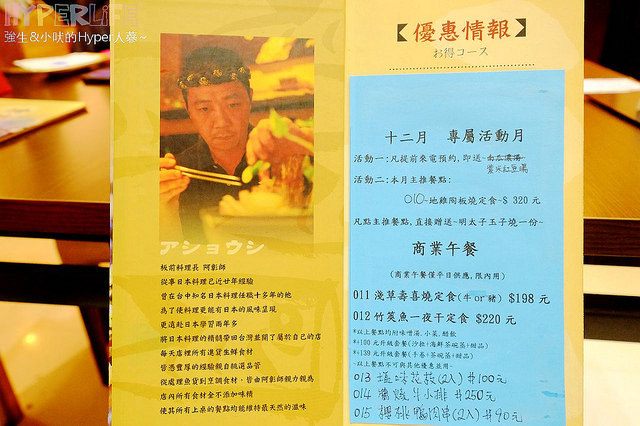 HYPERLiFE
強生&小吠的Hyper人蔘~
アショウシ
板前料理長 阿彰師
從事日本料理已近廿年經驗
曾在台中知名日本料理任職十多年的他
為了使料理更能有日本的風味呈現
更遠赴日本學習兩年多
將日本料理的精髓帶回台灣並開了屬於自己的店
每天店裡所有進貨生鮮食材
皆憑豐厚的經驗親自挑選品管
從處理魚貨到烹調食材,皆由阿彰師親力親為
店內所有食材全不添加味精
使其所有上桌的餐點均能維持最天然的滋味
【優惠情報】
お得コース
十二月 專屬活動月
活動一:凡提前來電預約,即送-南瓜濃湯
紫米紅豆湯
活動二:本月主推餐點:
010-地雞陶板燒定食-$ 320 元
凡點主推餐點,直接贈送~明太子玉子燒一份~
商業午餐
(商業午餐僅平日供應,限內用)
011 淺草壽喜燒定食(牛 or 豬) $198 元
012 竹筴魚一夜干定食 $220 元
*以上餐點均附味噌湯.小菜.醋飲
*+100 元升級套餐(沙拉+海鮮茶碗蒸+甜品)
*+139 元升級套餐(手卷+茶碗蒸+甜品)
-以上餐點不可與其他優惠並用-
013 花枝(2入) #100元
014 燒牛小排 #250元
015 櫻桃鴨肉串(2入) #90元